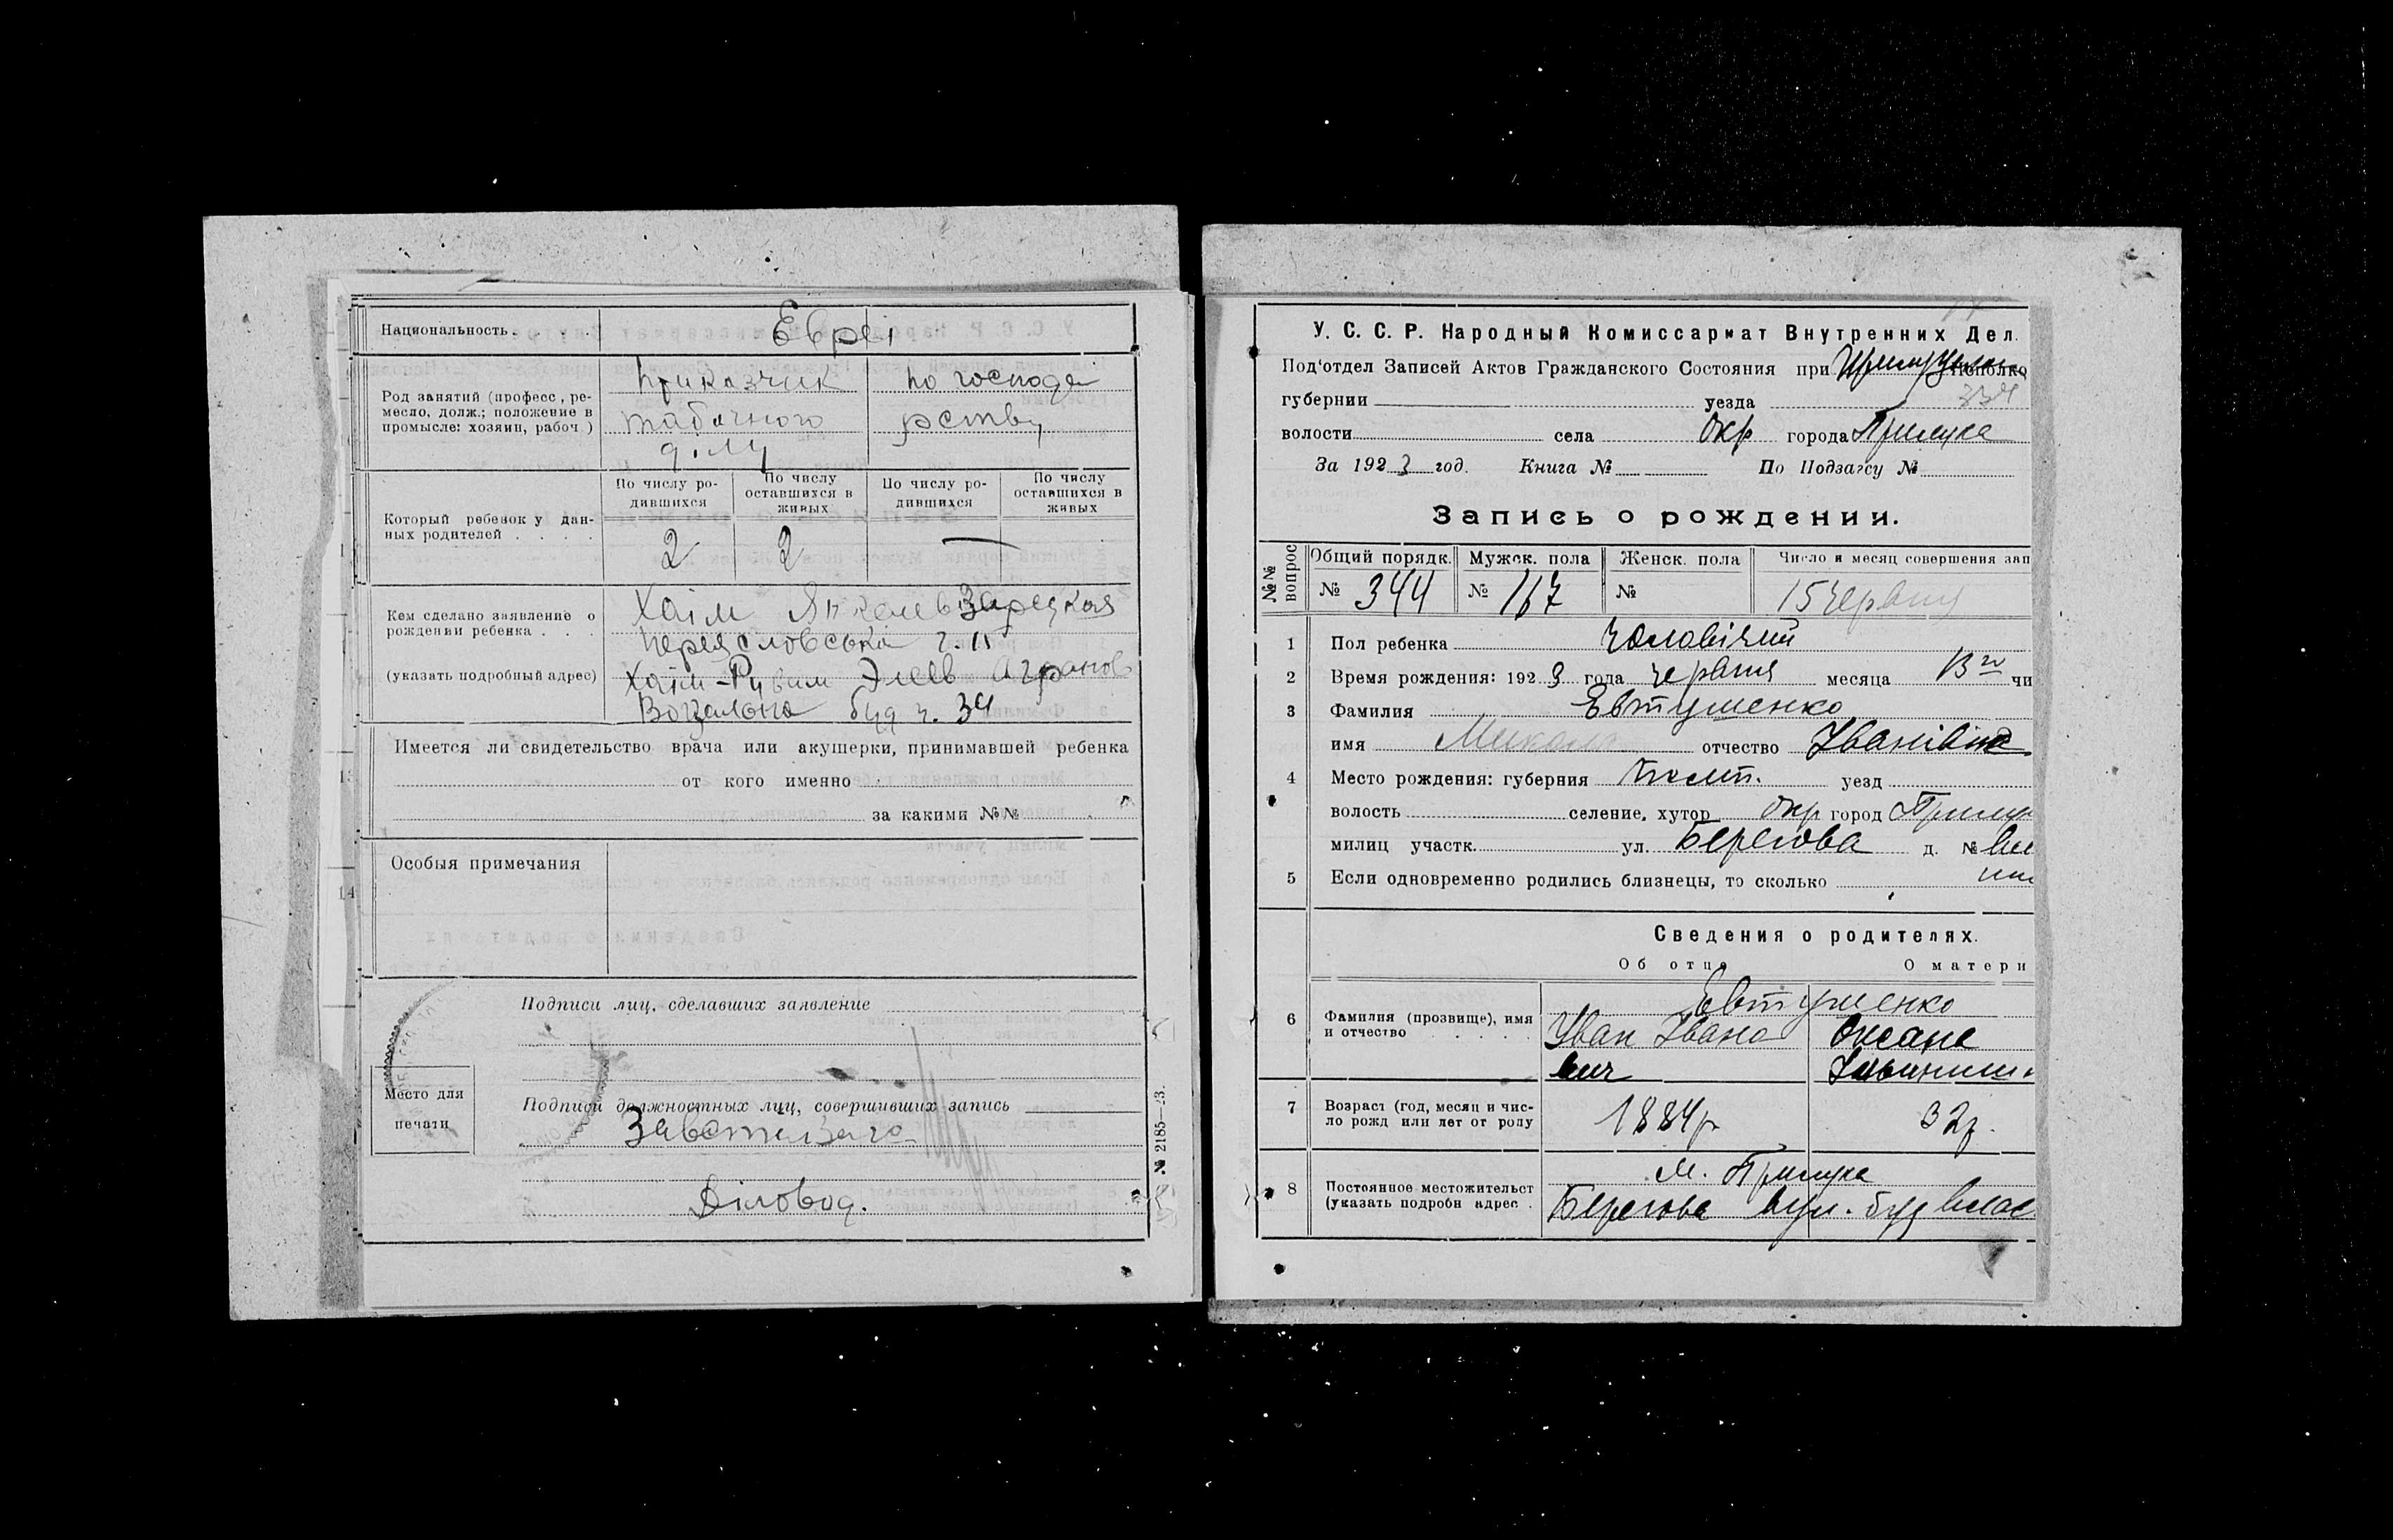 Национальность.
Евреі
Род занятий (професс, ре-
месло, долж.; положение в
промысле: хозяин, рабоч)
приказчик
табачного
ділу
по господа
рству
Который ребенок у дан-
ных родителей
По числу ро-
дившихся
По числу
оставшихся в
живых
По числу ро-
дившихся
По числу
оставшихся в
живых
2 2 —
Кем сделано заявление о
рождении ребенка
(указать подробный адрес)
Хаім Зарецкая
ч. 11
Хаім-Рувим Элев Агранов
буд ч. 34
Имеется ли свидетельство врача или акушерки, принимавшей ребенка
от кого именно
за какими №№
Особыя примечания
14
Подписи лиц, сделавших заявление
Место для
печати
Подписи должностных лиц, совершивших запись
Діловод.
№ 2185—23.
У. С. С. Р. Народный Комиссариат Внутренних Дел.
Под'отдел Записей Актов Гражданского Состояния при
334
губернии уезда
волости села окр города Прилука
За 1923 год. Книга № По Подзагсу №
Запись о рождении.
№№ вопрос
Общий порядк. Мужск. пола Женск. пола Число и месяц совершения зап
№ 344 № 167 № 15 червня
1 Пол ребенка чоловічий
2 Время рождения: 1923 года червня месяца 13го чи
3 Фамилия Евтушенко
имя Микола отчество Іванівич
4 Место рождения: губерния Полт. уезд
волость селение, хутор окр город Прилук
милиц участк. ул. Берегова д. № вл
5 Если одновременно родились близнецы, то сколько
Сведения о родителях.
Об отце О матери
6 Фамилия (прозвище), имя
и отчество
Евтушенко
Іван Івано
вич
Оксана
7 Возраст (год, месяц и чис-
ло рожд или лет от роду
1884р 32р.
8 Постоянное местожительст
(указать подробн адрес.
м. Прилука
Берегова вул. буд влас